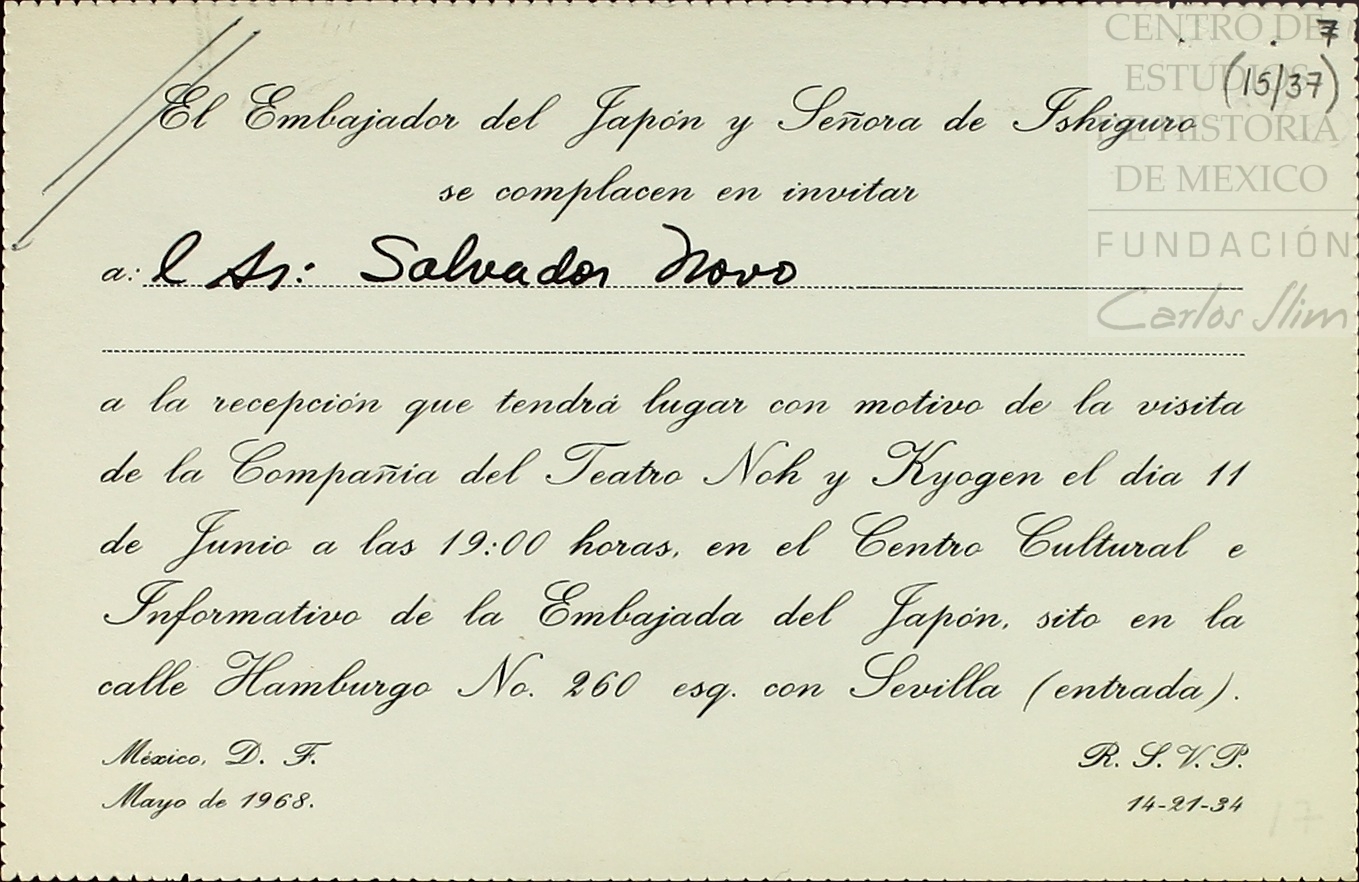 CENTRO DE
ESTUDIOS
DE HISTORIA
DE MEXICO
FUNDACIÓN
Carlos Slim
7
(15/37)
El Embajador del Japón y Señora de Ishiguro
se complacen en invitar
a: l Sr: Salvador Novo
a la recepción que tendrá lugar con motivo de la visita
de la Compañía del Teatro Noh y Kyogen el día 11
de Junio a las 19:00 horas, en el Centro Cultural e
Informativo de la Embajada del Japón, sito en la
calle Hamburgo No. 260 esq. con Sevilla (entrada).
México, D. F.
Mayo de 1968.
R. S. V. P.
14-21-34
17